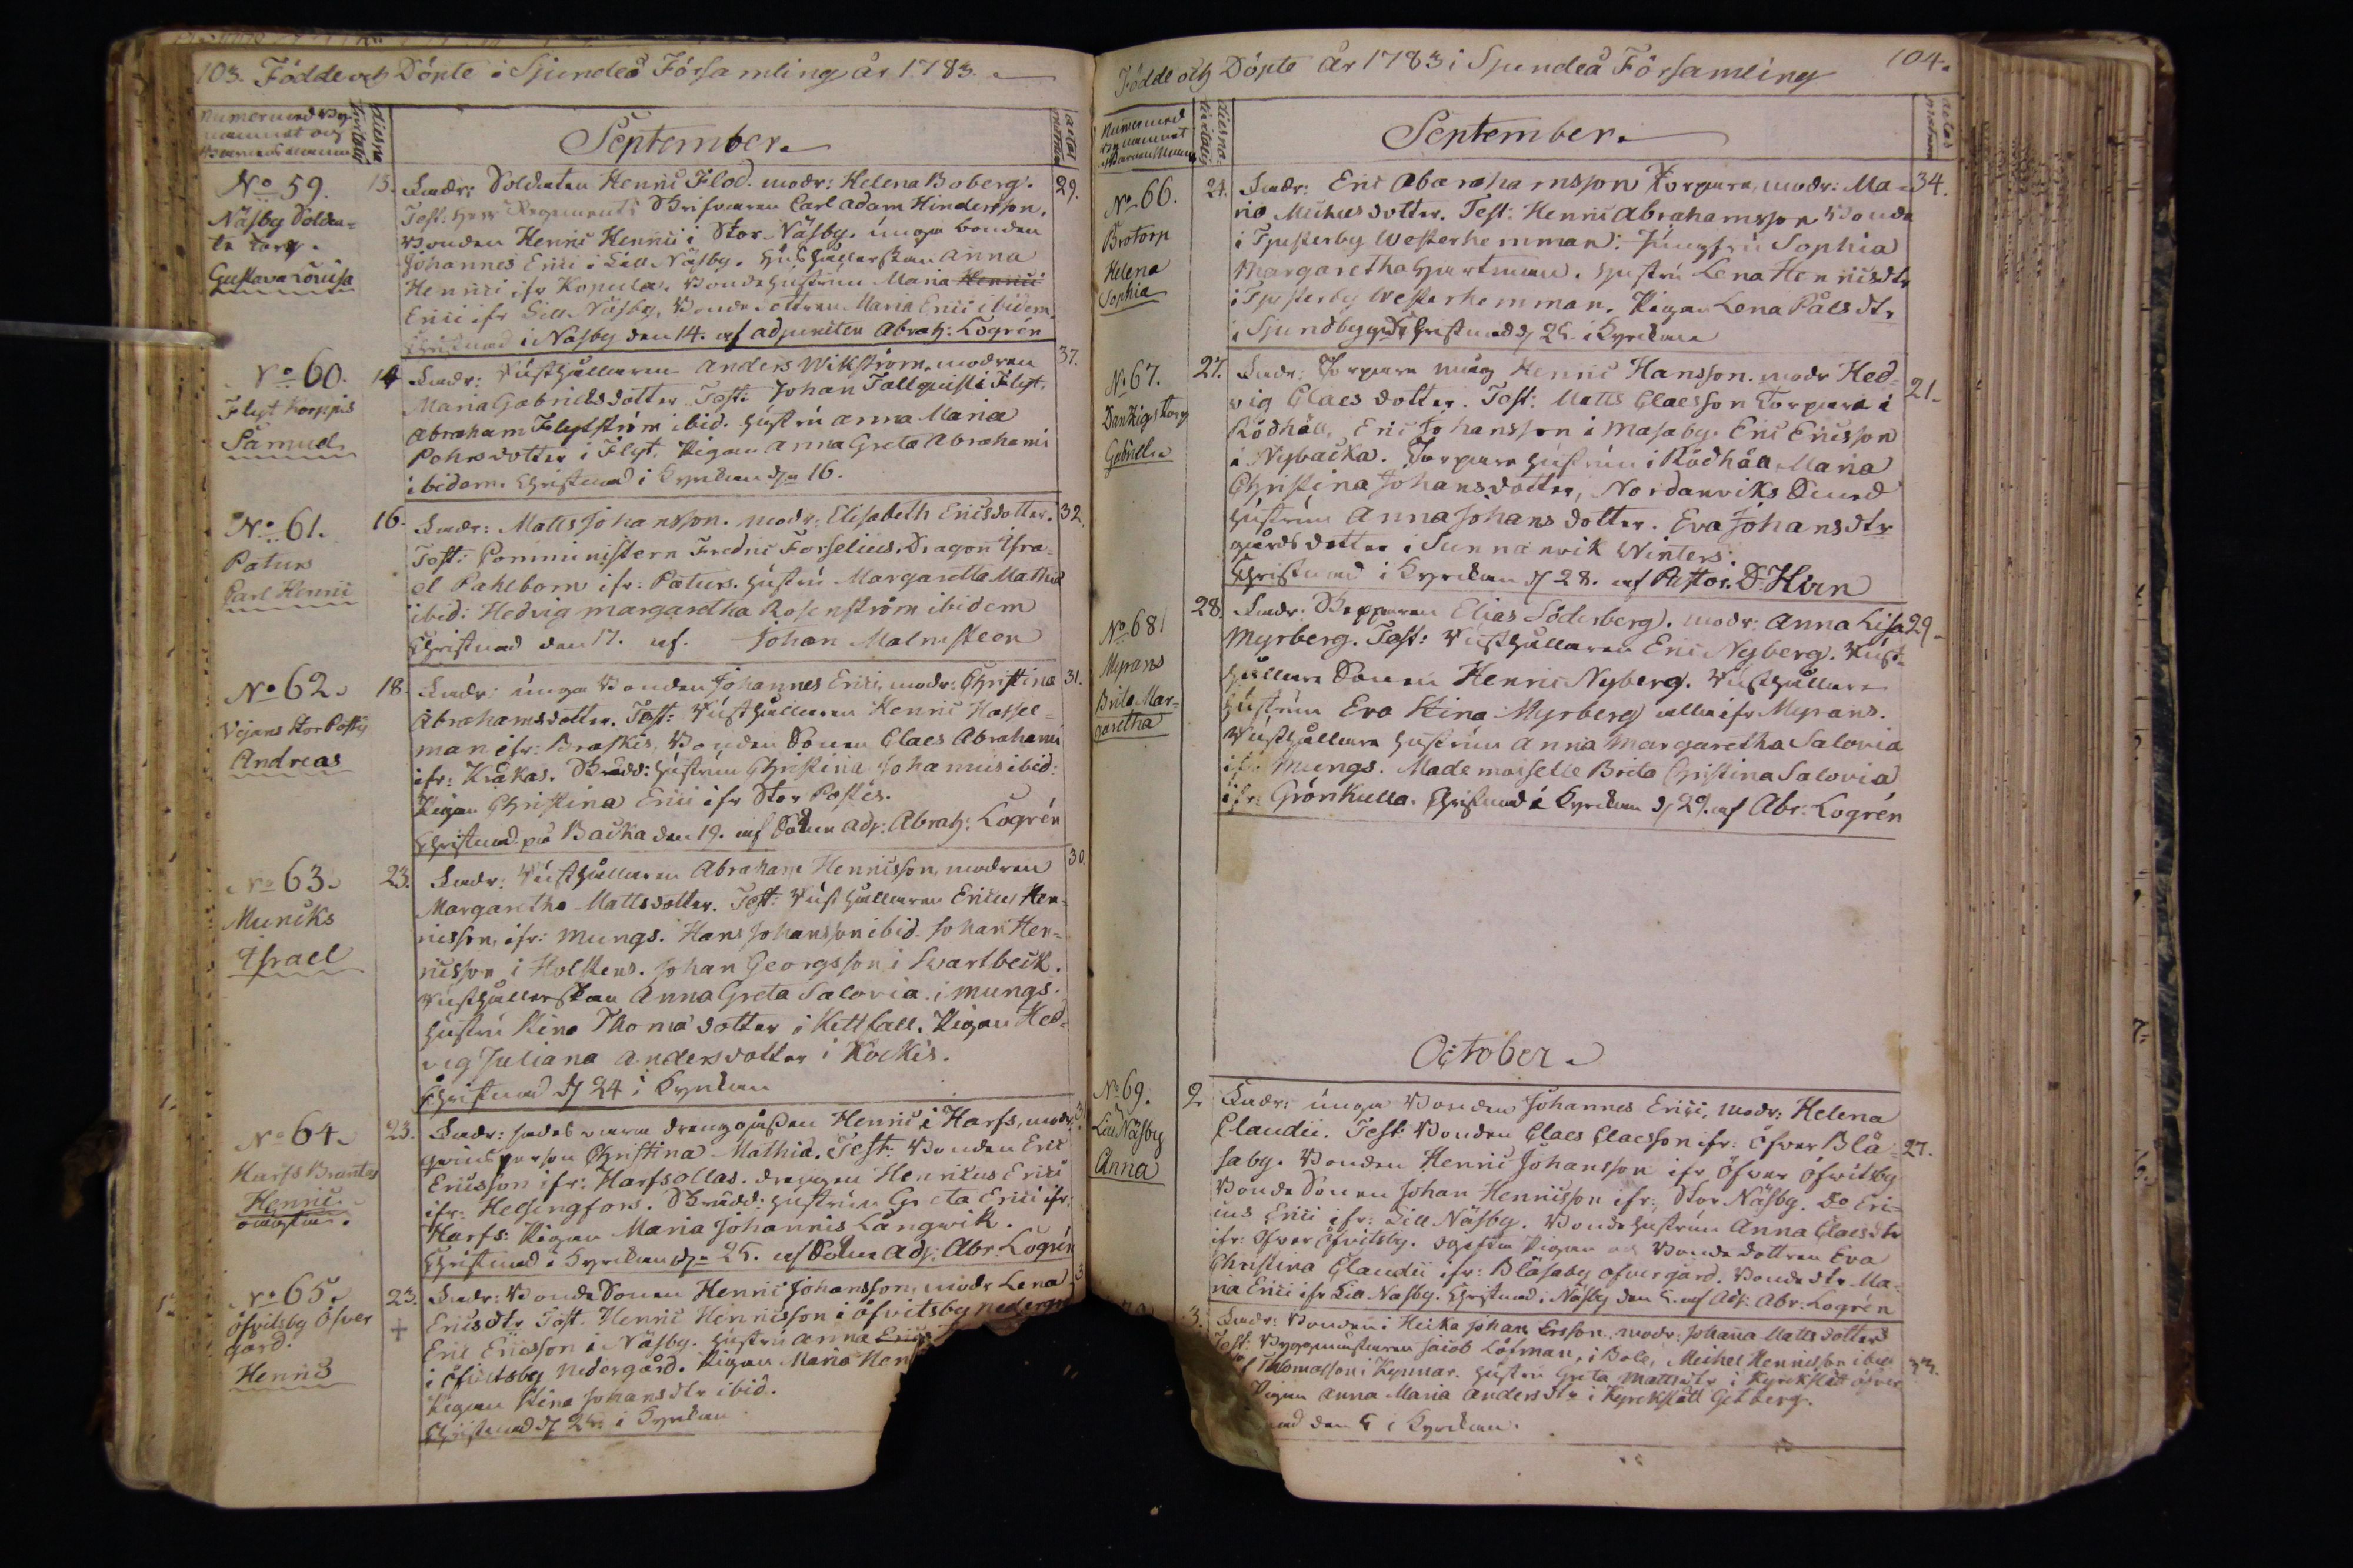 103. Födde och Döpte i Sjundeå Församling år 1783.
September.
No 59.
Näsby Solda=
te torp.
Gustava Lovisa
13. Fadr: Soldaten Henric Flod. modr: Helena Boberg. 29.
Test. Herr Regements Skrifvaren Carl Adam Hindersson.
Bonden Henric Henrici i Stor Näsby. unga bonden
Johannes Erici i Lill Näsby. Hushållerskan Anna
Henrici ifr Kopula. Bondehustrun Maria Henrici
Erici ifr Lill Näsby, Bondedottren Maria Erici ibidem.
Christnad i Näsby den 14. af adjuncten Abrah: Logrén
No 60.
Flyt Korppis
Samuel
14 Fadr: Rusthållaren Anders Wikström, modren 37.
Maria Gabrielsdotter. Test: Johan Tallquist i Flyt.
Abraham Flytström ibid. hustru Anna Maria
Pehrsdotter i Flyt. Pigan Anna Greta Abrahami
ibidem. Christnad i Kyrckan den 16.
No 61.
Paturs
Carl Henric
16. Fadr: Matts Johansson. modr: Elisabeth Ericsdotter. 32.
Test: Comministern Fredric Forselius, Dragon Isra=
el Pahlborn ifr: Paturs. hustru Margaretta Mathiæ
ibid: Hedvig margaretha Rosenström ibidem
Christnad den 17. af. Johan Malmsteen
No 62.
Vejans Stor Postis
Andreas
18. Fadr: unga Bonden Johannes Erici, modr: Christina 31.
Abrahamsdotter. Test: Rusthållaren Henric Hassel=
man ifr: Braskis, Bonden Sonen Claes Abrahami
ifr: Kråkas. Skrädd: hustrun Christina Johannis ibid:
Pigan Christina Erici ifr Stor Postis.
Christnad på Backa den 19. af Adj: Abrah: Logrén
No 63.
Muncks
Israel
23. Fadr: Rusthållaren Abraham Henricsson, modren 30.
Margaretha Mattsdotter. Test: Rusthållaren Ericus Hen=
ricsson, ifr: Mungs. Hans Johansson ibid. Johan Hen=
ricsson i Holstens. Johan Georgsson i Svartbeck.
Rusthållerskan Anna Greta Salovia i mungs.
Hustru Stina Thomædotter i Kettball. Pigan Hed=
vig Juliana Andersdotter i Kockis.
Christnad d 24 i Kyrckan
No 64.
Harfs Brantas
Henric
oäckta.
23. Fadr: drengogossen Henric i Harfs, modr:
qvinsperson Christina Mathiæ. Test: Bonden Eric
Ericsson ifr: Harfsollas. drengen Henricus Erici
ifr: Helsingfors. Skrädd: hustrun Greta Erici ifr,
Harfs: Pigan Maria Johannis Långwik.
Christnad i Kyrckan den 25. af Adj: Abr: Logrén
No 65.
Öfvitsby Öfver
gård.
Henric
23. Fadr: Bonde Sonen Henric Johansson, modr Lena
+ Ericsdtr Test. Henric Henricsson i Öfvitsby nedergå
Eric Ericsson i Näsby. hustru Anna
i Öfvitsby Nedergård. Pigan Maria Hen
Pigan Stina Johansdtr ibid.
Christnad d 25. i Kyrckan
Födde och Döpte år 1783 i Sjundeå Församling 104.
September.
No 66.
Brotorp
Helena
Sophia
24. Fadr: Eric Abarahamsson Torpare, modr: Ma= 34.
ria Michelsdotter. Test: Henric Abrahamsson Bonde
i Tjusterby Westerhemman: Jungfru Sophia
Margaretha Hartman. Hustru Lena Henricsdtr
i Tjusterby Westerhemman. Pigan Lena Pålsdtr
i Sjundby gd Christnad d 25. i Kyrckan
No 67.
Danzigs torp
Gabriel
27. Fadr: Torpare måg Henric Hansson. modr Hed= 21.
vig Claesdotter. Test: Matts Claesson Torpare i
Rödhäll, Eric Johansson i Masaby. Eric Ericsson
i Nybacka. Torpare hustrun i Rödhäll Maria
Christina Johansdotter, Nordanviks Smed
hustrun Anna Johansdotter. Eva Johansdtr
gårdsdotter i Sunnanvik Winters.
Christnad i Kyrckan d 28. af Pastor. D. Hirn
No 68
Myrans
Brita Mar=
garetha
28. Fadr: Elias Söderberg. modr: Anna Lisa 29.
Myrberg. Test: Rusthållaren Eric Nyberg. Rust=
hållare Sonen Henric Nyberg. Rusthållare
hustrun Eva Stina Myrberg alla ifr Myrans.
Rusthållare hustrun Anna Margaretha Salovia
ifr: Mungs. Mademoiselle Brita Christina Salovia
ifr: Grönkulla. Christnad i Kyrckan d 29. af Abr: Logrén
October.
No 69.
Lill Näsby
Anna
2 Fadr: unga Bonden Johannes Erici, modr: Helena
Claudii. Test: Bonden Claes Claesson ifr: Öfver Blå= 27.
saby. Bonden Henric Johansson ifr Öfver Öfvitsby
Bonde Sonen Johan Henricsson ifr: Stor Näsby. Do Eri=
cus Erici ifr: Lill Näsby. Bonde hustrun Anna Claesdtr
ifr: Öfver Öfvitsby. Pigan och Bondedottren Eva
Christina Claudii ifr: Blåsaby Öfvergård. Bondedtr Ma=
ria Erici ifr Lill Näsby. Christnad i Näsby den 5. af Adj: Abr. Logrén
3. Fadr: Bonden i Heika Johan Ersson. modr: Johanna Mattsdotter
Test: Byggmästaren Jacob Löfman, i Bole, Michel Henricsson ibid
Thomasson i Kynnar. hustru Greta Mattsdtr i Kyrckslätt öfver
Pigan Anna Maria Andersdtr i Kyrckslätt Getberg.
nad den 5 i Kyrckan.